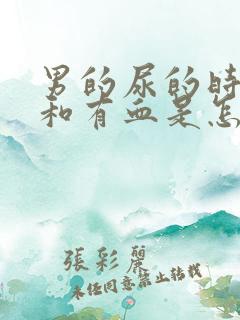 男的尿的时
和有血是怎
張彩麗
未经同意禁止转载